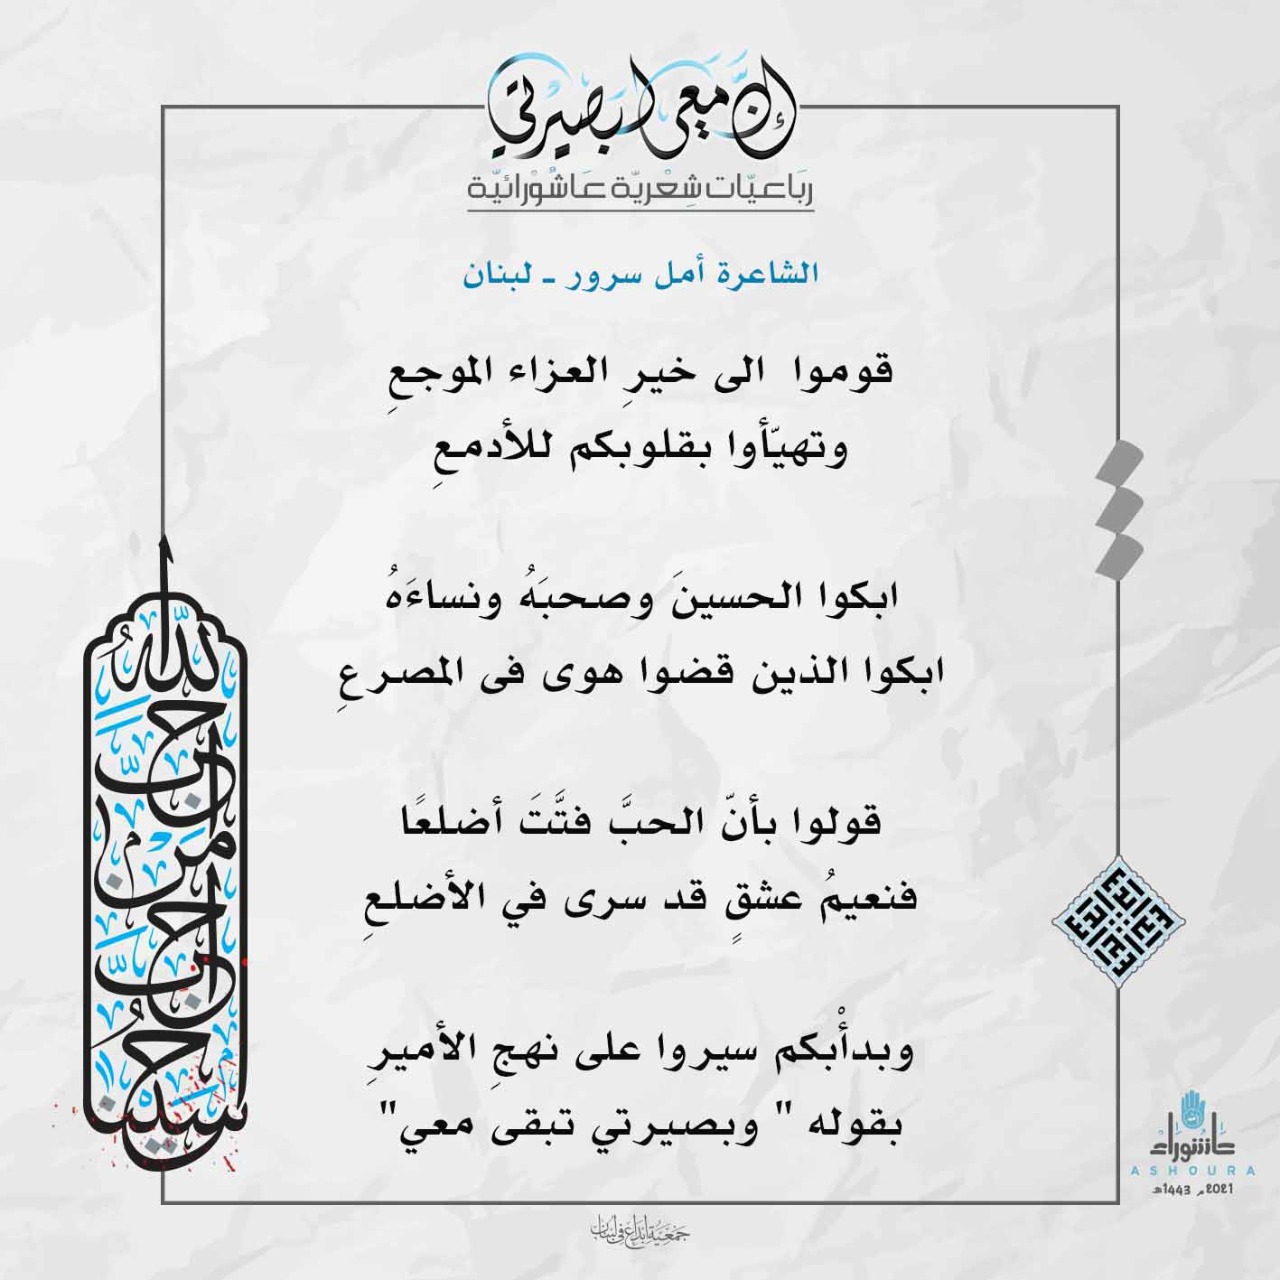 إنّ معي لبصيرتي
رباعيّات شِعْريّة عَاشُوْرائيّة
الشاعرة أمل سرور - لبنان
قوموا الى خيرِ العزاء الموجعِ
وتهيّأوا بقلوبكم للأدمعِ
ابكوا الحسينَ وصحبَهُ ونساءَهُ
ابكوا الذين قضوا هوى فى المصرعِ
قولوا بأنّ الحبَّ فتَّتَ أضلعًا
فنعيمُ عشقٍ قد سرى في الأضلعِ
وبدأْبكم سيروا على نهجِ الأميرِ
بقوله " وبصيرتي تبقى معي"
أحبّ الله من أحبّ حسينا
عاشوراء
ASHOURA
2021م 1443هـ
جمعية إبداع في لبنان